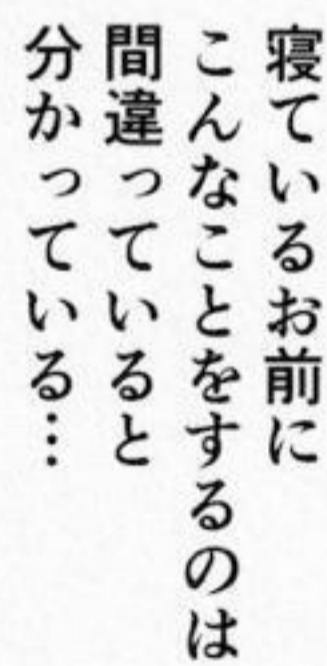 寝ているお前に
こんなことをするのは
間違っていると
分かっている…